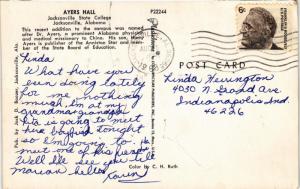 AYERS HALL
Jacksonville State College
Jacksonville, Alabama
P22244
This recent addition to the campus was named
after Dr. Ayers, a prominent Alabama physician
and medical missionary to China. His son, Harry
Ayers is publisher of the Anniston Star and mem-
ber of the State Board of Education.
6c
POST CARD
Linda
What have you
been doing lately
for me nothing
much. I'm at my
grandma
is going to meet
her boyfriend tonight
so I'm going to
meet one of his friends
Well I'll see you
marian hello
Karen
Linda Hevington
4030 N. Grand Ave
Indianapolis Ind.
46226
Color by C. H. Ruth